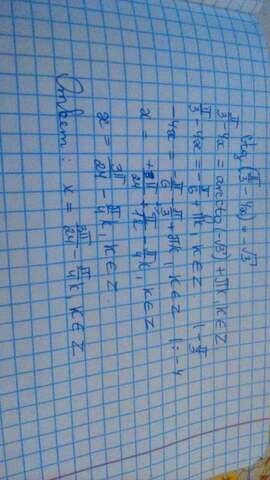 ctg(π/3 - 4x) = -√3
π/3 - 4x = arcctg(-√3) + πk, k∈Z
π/3 - 4x = -π/6 + πk, k∈Z | -π/3
-4x = -π/6 - π/3 + πk, k∈Z | : -4
k∈Z
x = 3π/24 - π/4 k, k∈Z
Ответ: x = 3π/24 - π/4 k, k∈Z